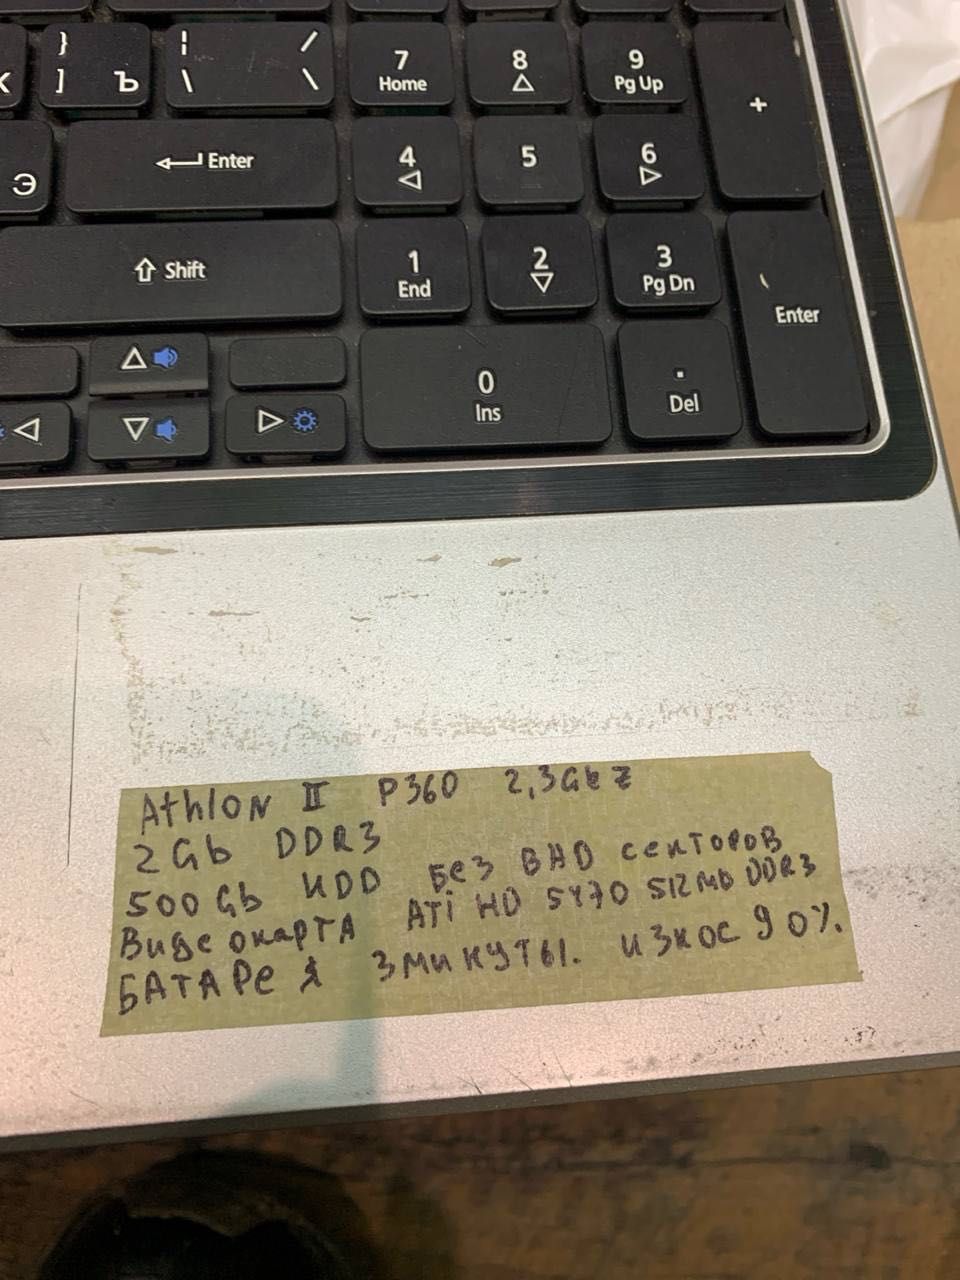 К } ] Ъ ¦ \ / \ 7 Home 8 9 Pg Up +
Э Enter 4 5 6
Shift 1 End 2 3 Pg Dn Enter
0 Ins . Del
Athlon II P360 2,3GhZ
2Gb DDR3
500Gb HDD БЕЗ BAD секторов
Видеокарта ATi HD 5470 512Mb DDR3
БАТАРЕЯ 3минуты. износ 90%.